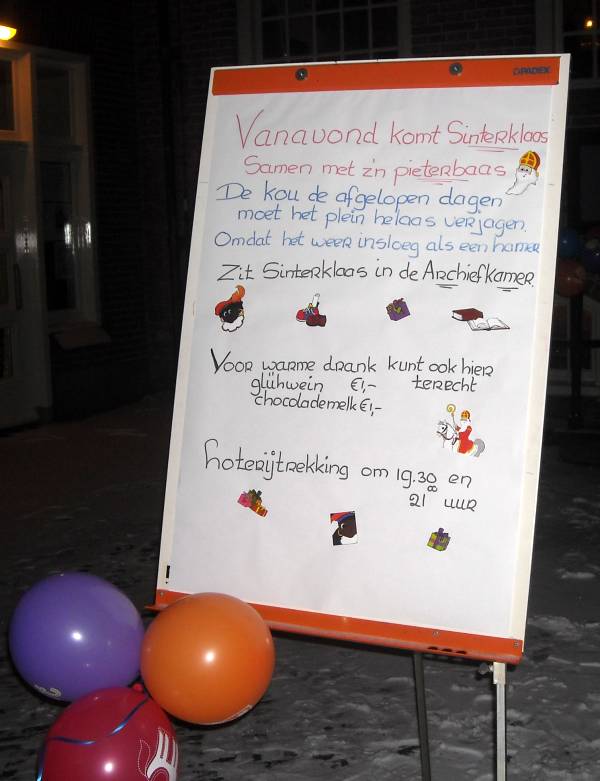 PADEK
Vanavond komt Sinterklaas
Samen met z'n pieterbaas
De kou de afgelopen dagen
moet het plein helaas verjagen.
Omdat het weer insloeg als een hamer
Zit Sinterklaas in de Archiefkamer.
Voor warme drank kunt ook hier
glühwein €1,- terecht
chocolademelk €1,-
Loterijtrekking om 19.30 en
21.00 uur